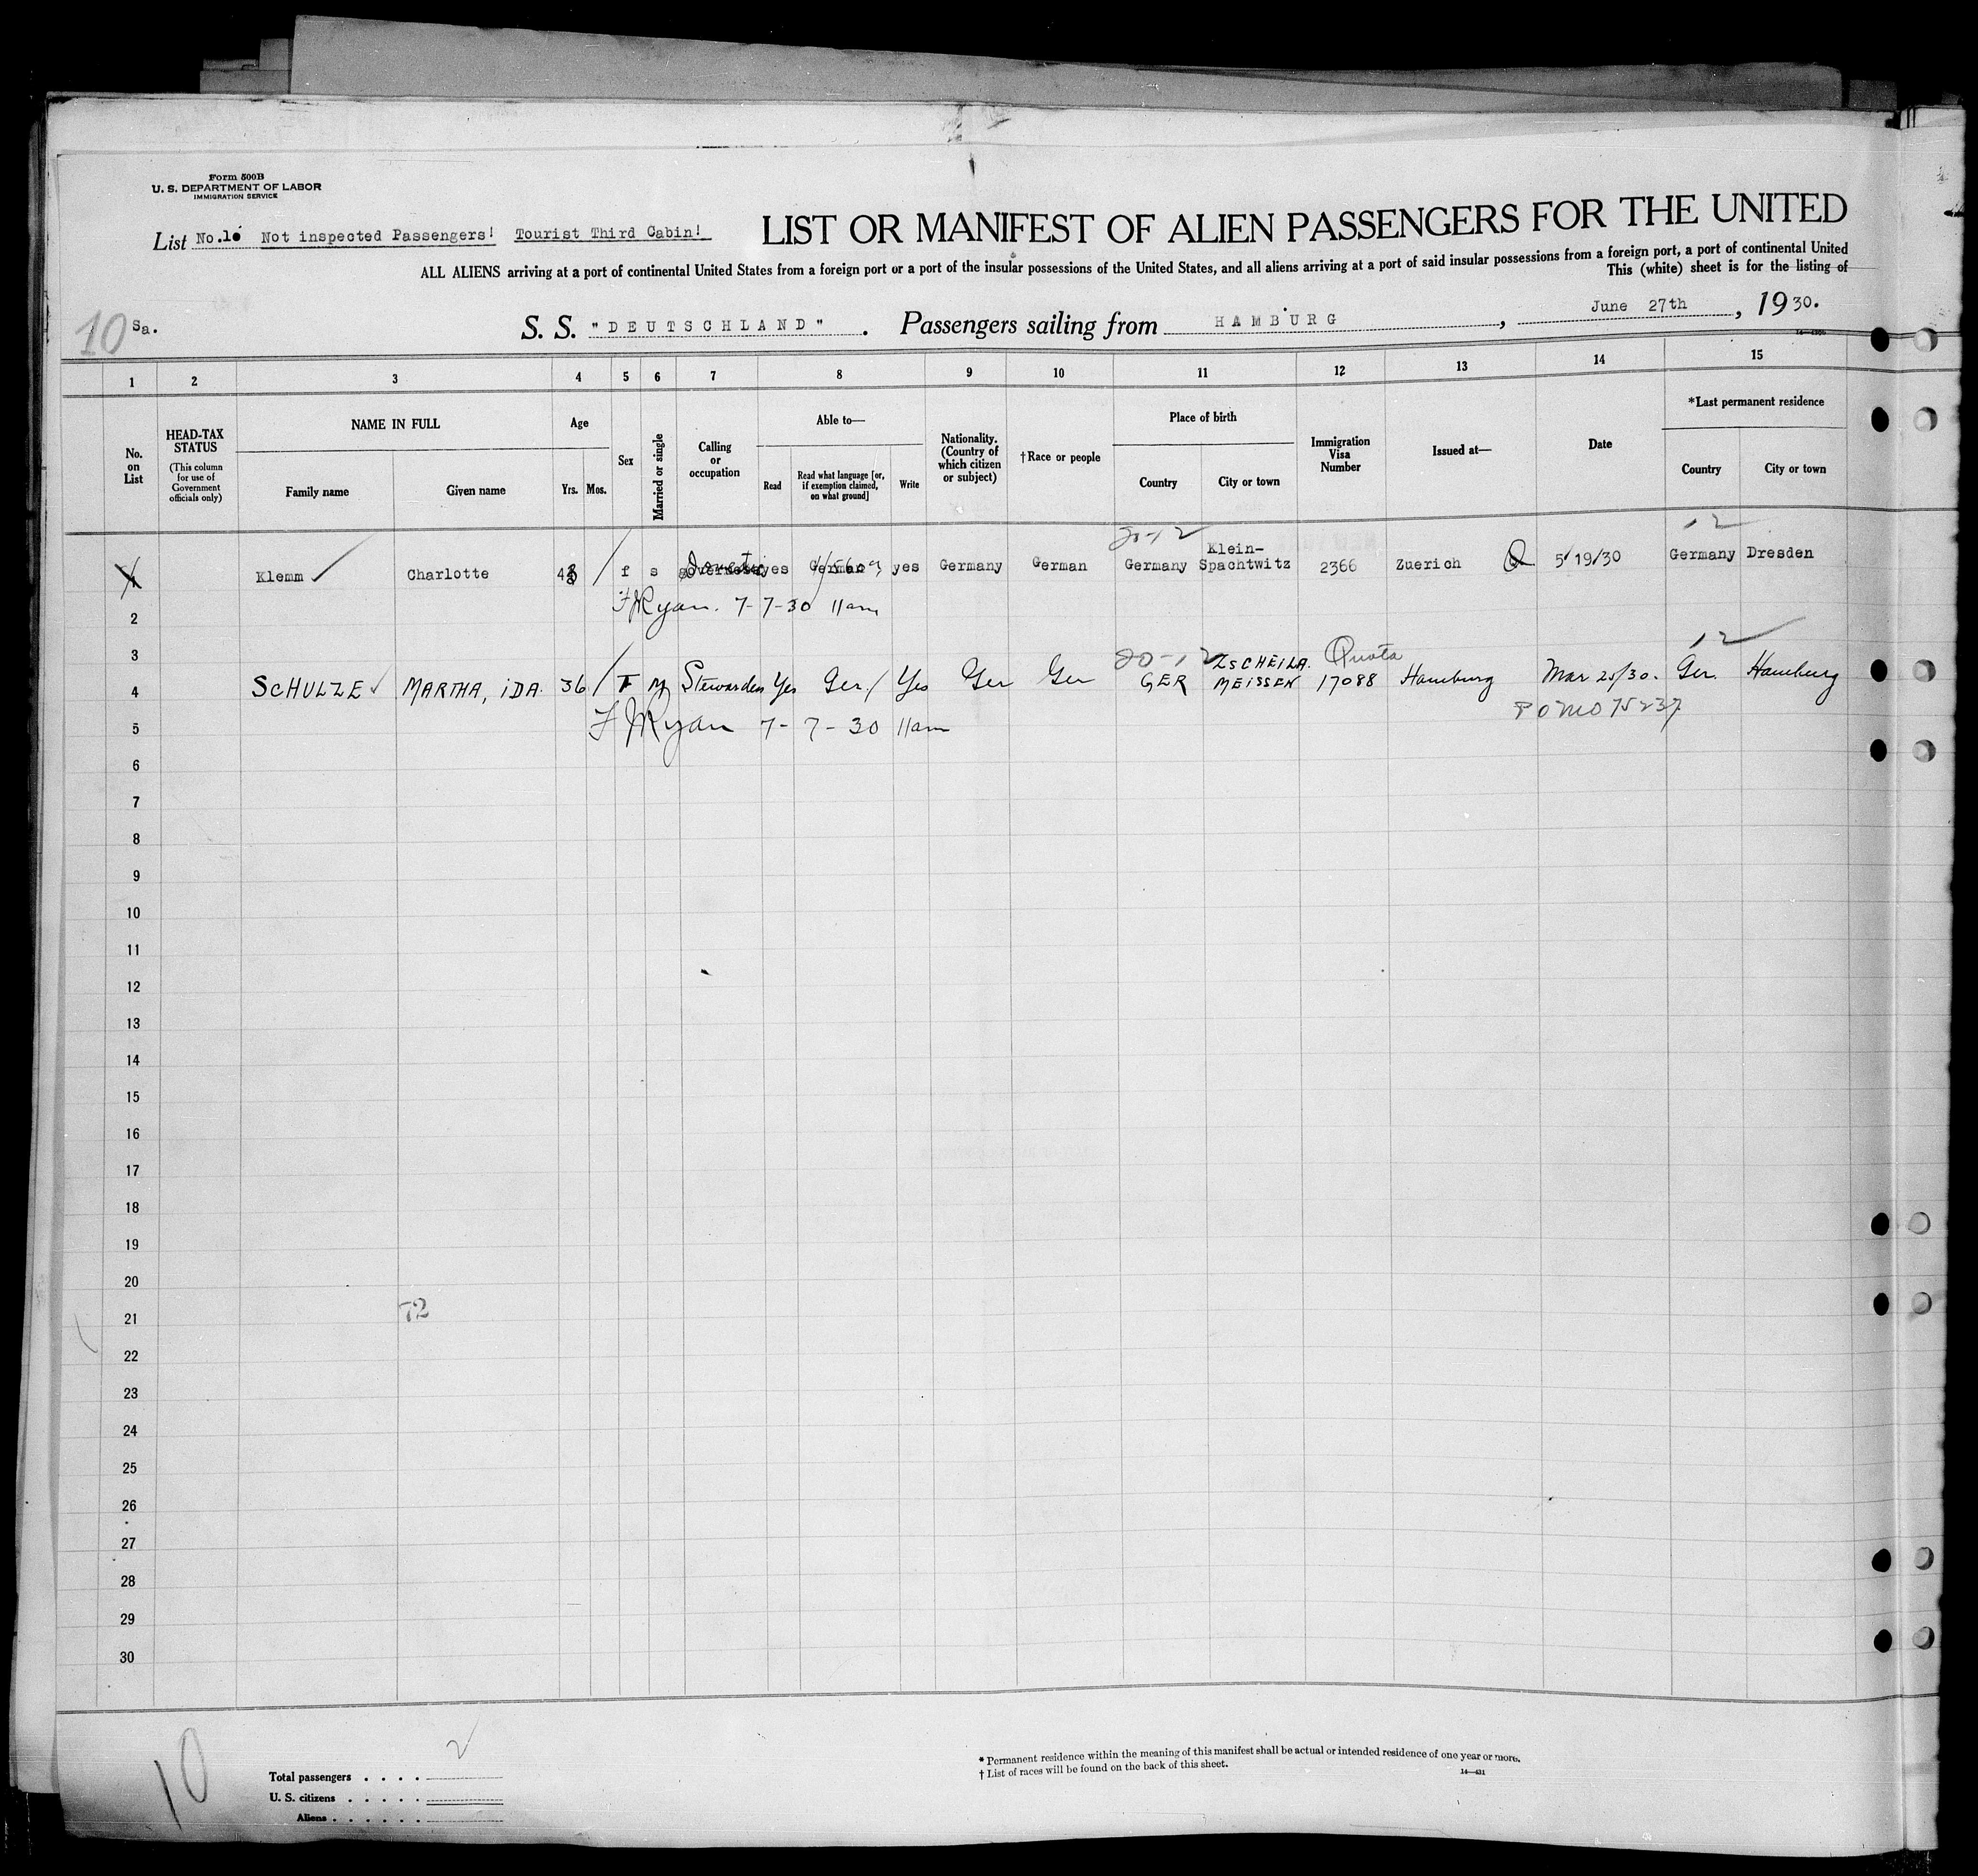 Form 500B
U. S. DEPARTMENT OF LABOR
IMMIGRATION SERVICE
List No.10 Not inspected Passengers! Tourist Third Cabin!
LIST OR MANIFEST OF ALIEN PASSENGERS FOR THE UNITED
ALL ALIENS arriving at a port of continental United States from a foreign port or a port of the insular possessions of the United States, and all aliens arriving at a port of said insular possessions from a foreign port, a port of continental United
This (white) sheet is for the listing of
10 Sa.
S. S. "DEUTSCHLAND". Passengers sailing from HAMBURG, June 27th, 1930.
1 2 3 4 5 6 7 8 9 10 11 12 13 14 15
No. on List
HEAD-TAX STATUS (This column for use of Government officials only)
NAME IN FULL
Family name Given name
Age
Yrs. Mos.
Sex
Married or single
Calling or occupation
Able to—
Read Read what language [or, if exemption claimed, on what ground] Write
Nationality. (Country of which citizen or subject)
†Race or people
Place of birth
Country City or town
Immigration Visa Number
Issued at—
Date
*Last permanent residence
Country City or town
20-12 12
1 Klemm Charlotte f s yes German yes Germany German Germany Klein-Spachtwitz 2366 Zuerich Q 5/19/30 Germany Dresden
FJRyan. 7-7-30 11am
2
3
20-12 Quota 12
4 SCHULZE MARTHA, IDA. 36 F M Stewardess Yes Ger. Yes Ger Ger GER ZSCHEILA. MEISSEN 17088 Hamburg Mar 25/30. Ger. Hamburg
5 FJRyan 7-7-30 11am
6
7
8
9
10
11
12
13
14
15
16
17
18
19
20
21 72
22
23
24
25
26
27
28
29
30
10
Total passengers . . . . 2
U. S. citizens . . . . .
Aliens . . . . . .
* Permanent residence within the meaning of this manifest shall be actual or intended residence of one year or more.
† List of races will be found on the back of this sheet.
14—431